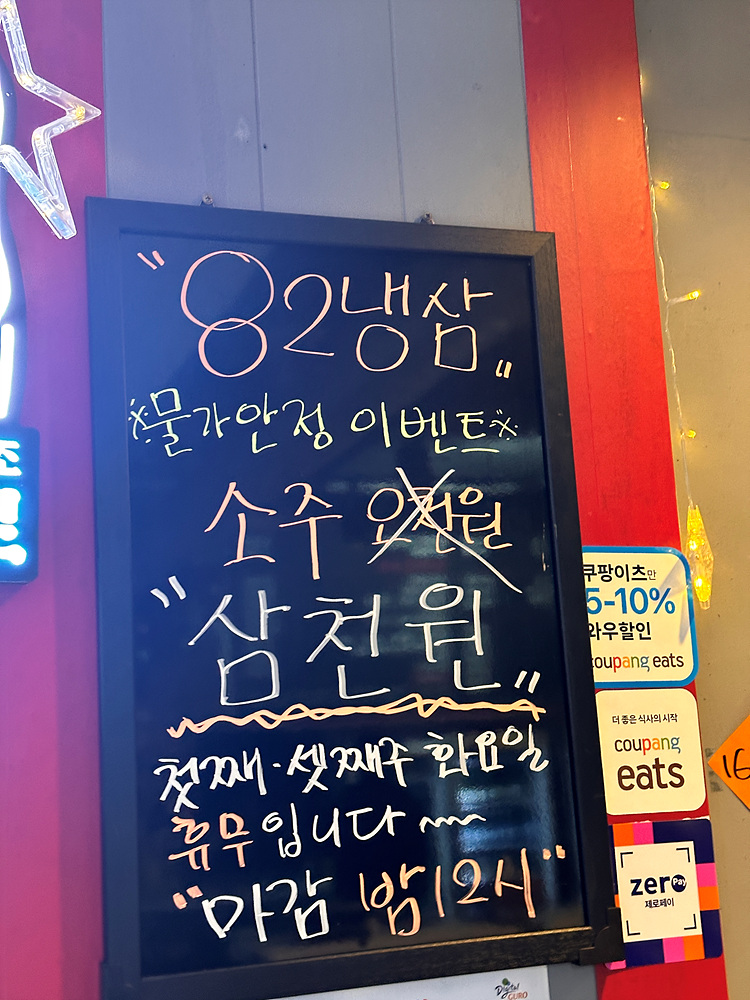 "82냉삼"
※물가안정 이벤트※
소주 오천원
"삼천원"
첫째·셋째주 화요일
휴무입니다~
"마감 밤12시"
쿠팡이츠만
5-10%
와우할인
coupang eats
더 좋은 식사의 시작
coupang
eats
16
zero Pay
제로페이
Digital
GURO